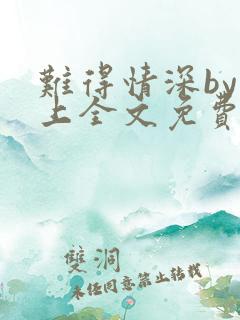 難得情深by
上全文免費
雙洞
未經同意禁止轉載